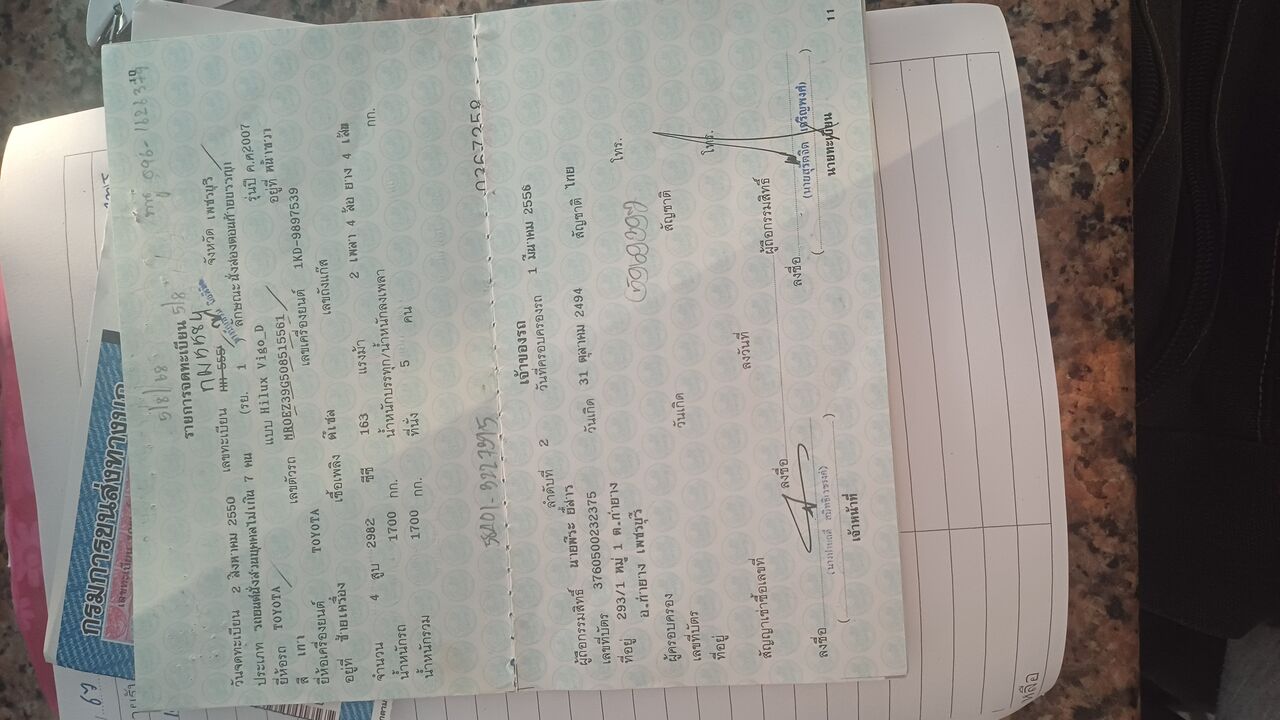 5/8/68
096-1626379
10
รายการจดทะเบียน 5/8
กพ 3384
วันจดทะเบียน 2 สิงหาคม 2550 เลขทะเบียน หห 555 จังหวัด เพชรบุรี
ประเภท รถยนต์นั่งส่วนบุคคลไม่เกิน 7 คน (รย. 1 ลักษณะนั่งสองตอนท้ายบรรทุก
ยี่ห้อรถ TOYOTA แบบ Hilux Vigo D รุ่นปี ค.ศ.2007
สี เทา เลขตัวรถ MR0EZ39G508515561 อยู่ที่ หน้าขวา
ยี่ห้อเครื่องยนต์ TOYOTA เลขเครื่องยนต์ 1KD-9897539
อยู่ที่ ซ้ายเครื่อง เชื้อเพลิง ดีเซล เลขถังแก๊ส
จำนวน 4 สูบ 2982 ซีซี 163 แรงม้า 2 เพลา 4 ล้อ ยาง 4 เส้น
น้ำหนักรถ 1700 กก. น้ำหนักบรรทุก/น้ำหนักลงเพลา กก.
น้ำหนักรวม 1700 กก. ที่นั่ง 5 คน
0267258
เจ้าของรถ
ลำดับที่ 2 วันที่ครอบครองรถ 1 มีนาคม 2556
ผู้ถือกรรมสิทธิ์ นายพีระ ยี่สาร
เลขที่บัตร 3760500232375 วันเกิด 31 ตุลาคม 2494 สัญชาติ ไทย
ที่อยู่ 293/1 หมู่ 1 ต.ท่ายาง โทร.
อ.ท่ายาง เพชรบุรี
ผู้ครอบครอง
เลขที่บัตร วันเกิด สัญชาติ
ที่อยู่ โทร.
สัญญาเช่าซื้อเลขที่ ลงวันที่ ผู้ถือกรรมสิทธิ์
ลงชื่อ ลงชื่อ ลงชื่อ
(นายสุรัตจิต เจริญพงศ์)
เจ้าหน้าที่ นายทะเบียน
11
กรมการขนส่งทางบก